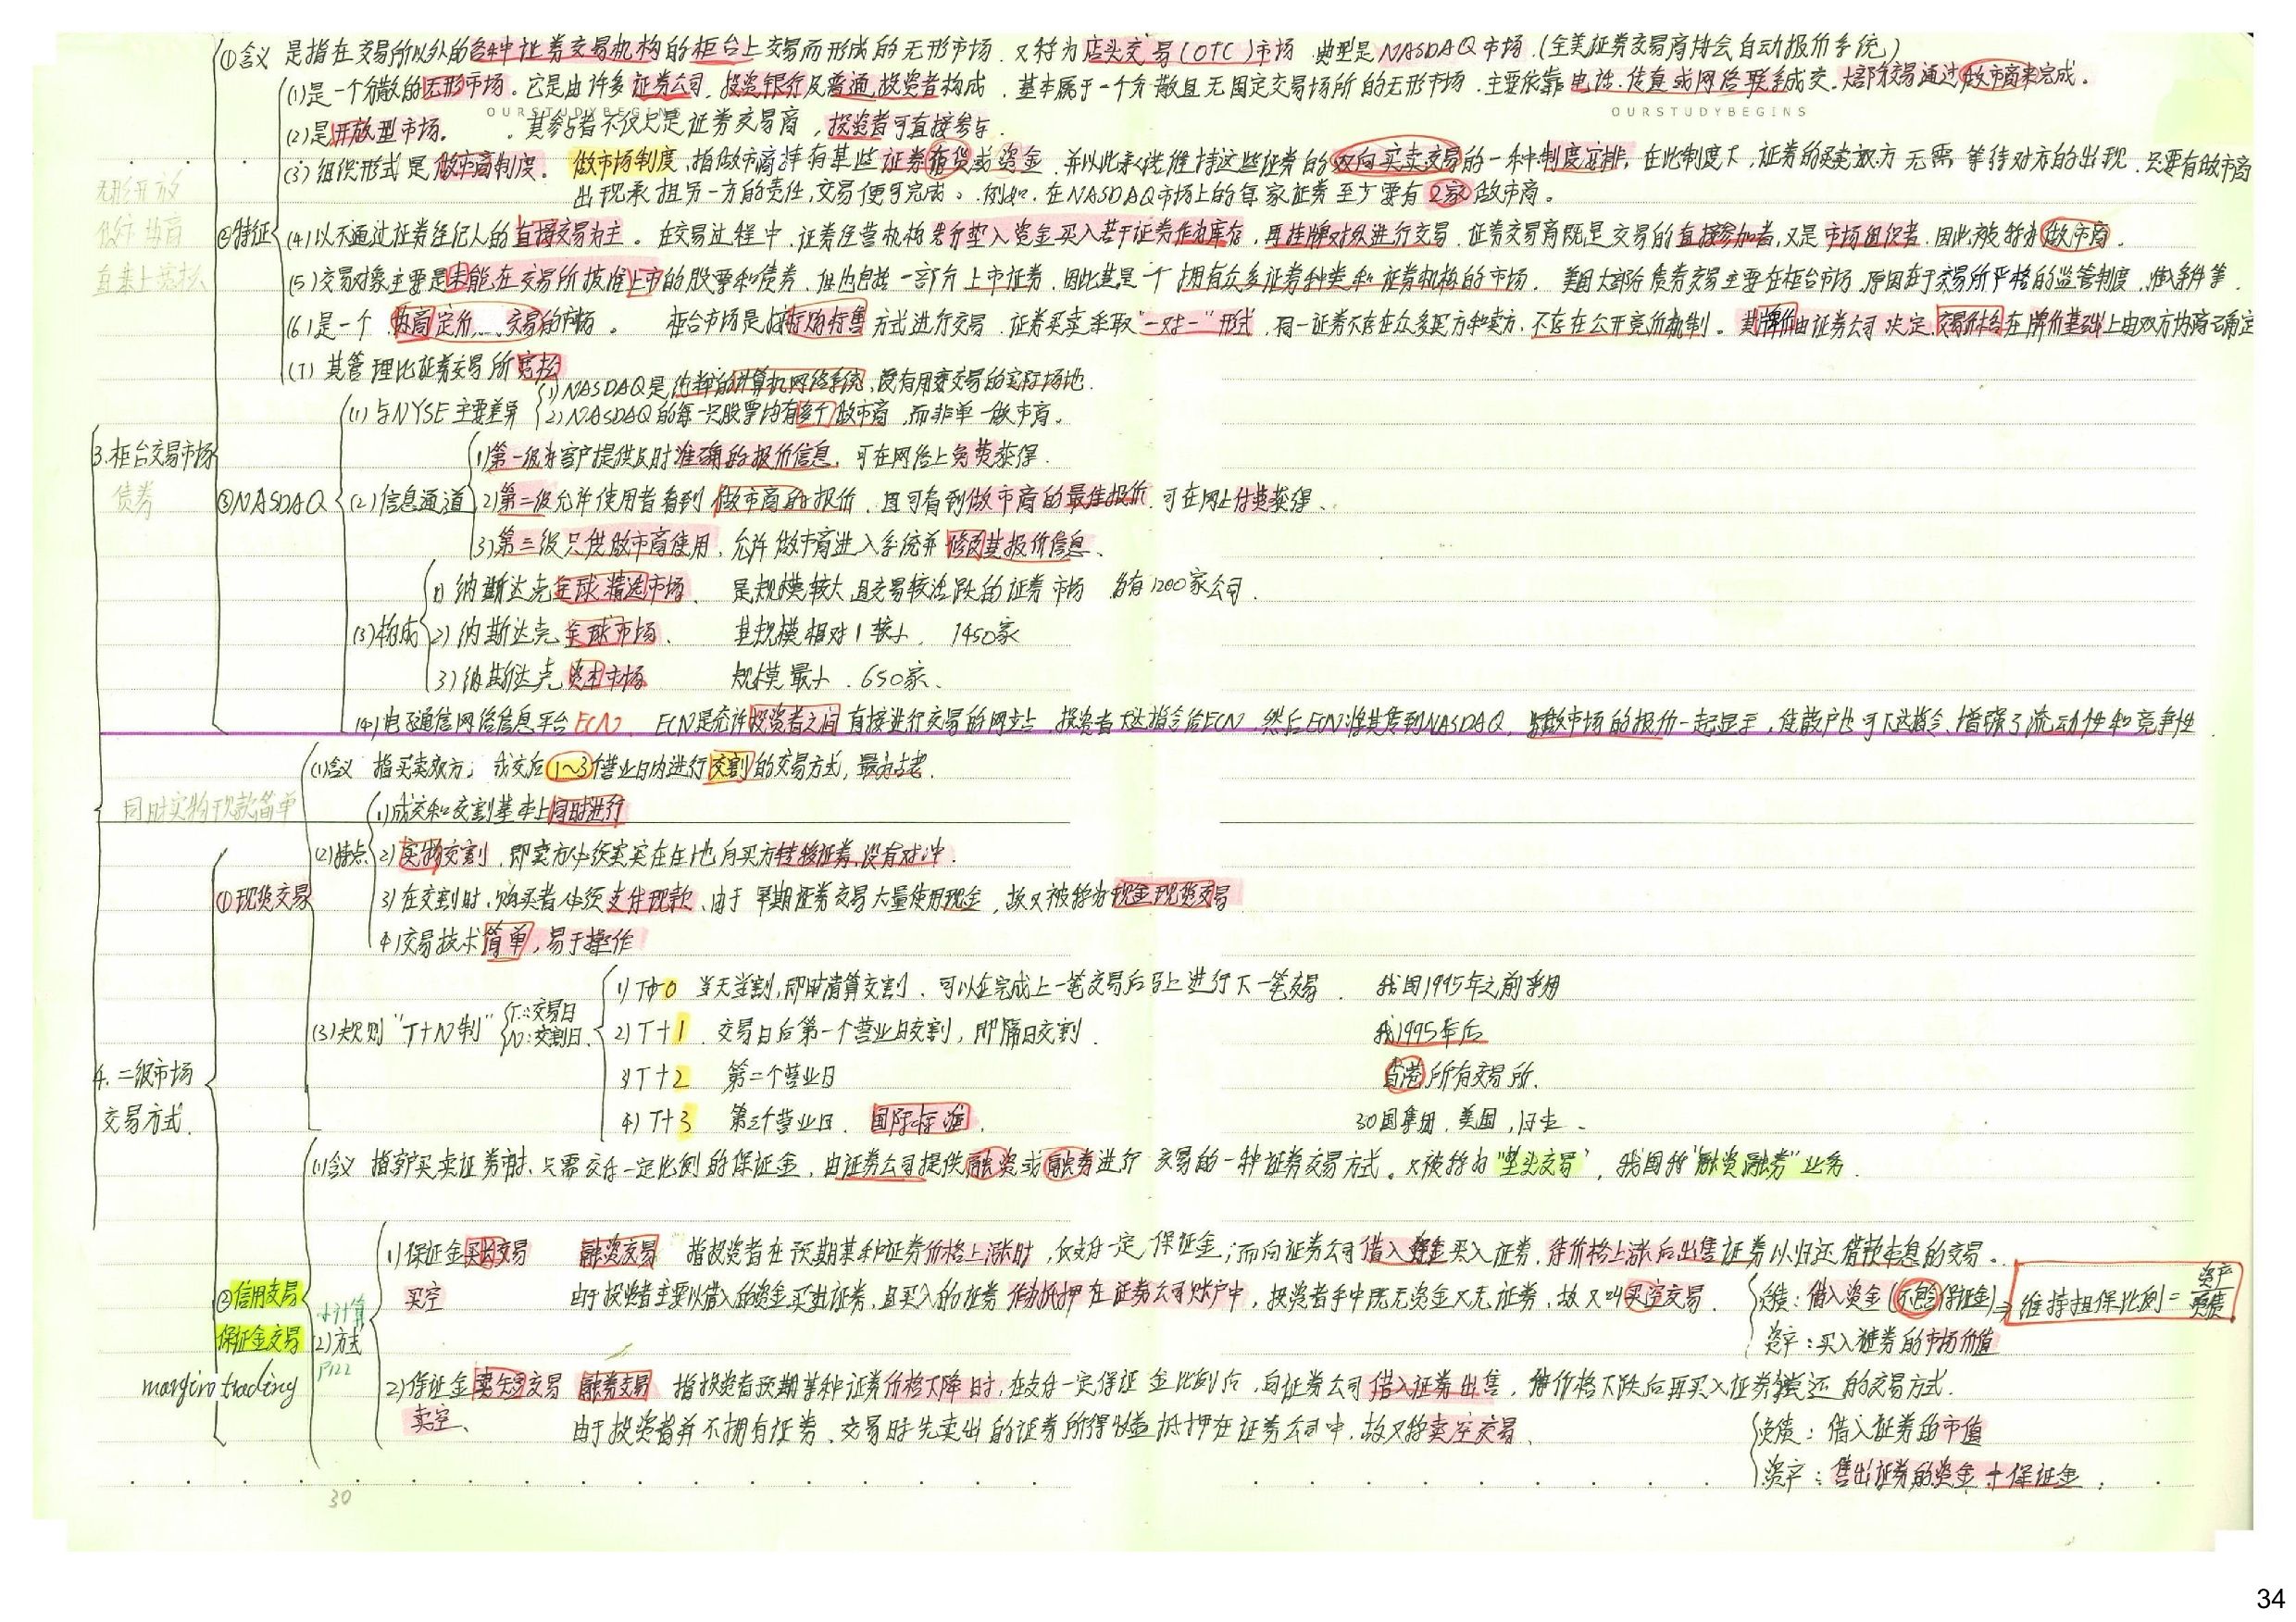 ①含义 是指在交易所以外的各种证券交易机构的柜台上交易而形成的无形市场.又称为店头交易(OTC)市场 典型是NASDAQ市场.(全美证券交易商协会自动报价系统)
(1)是一个分散的无形市场。它是由许多证券公司、投资银行及普通投资者构成,基本属于一个分散且无固定交易场所的无形市场.主要依靠电话、传真或网络联系成交.大部分交易通过做市商来完成。
OURSTUDYBEGINS
OURSTUDYBEGINS
(2)是开放型市场。其参与者不仅只是证券交易商,投资者可直接参与.
无形开放
(3)组织形式是做市商制度。做市场制度,指做市商持有某些证券存货或资金 并以此承诺维持这些证券的双向买卖交易的一种制度安排,在此制度下,证券的买卖双方无需等待对方的出现.只要有做市商
出现承担另一方的责任,交易便可完成。例如,在NASDAQ市场上的每家证券至少要有2家做市商。
做市 协商
②特征
(4)以不通过证券经纪人的直接交易为主。在交易过程中,证券经营机构先行垫入资金买入若干证券作为库存,再挂牌对外进行交易.证券交易商既是交易的直接参加者,又是市场组织者.因此被称为做市商.
(5)交易对象主要是未能在交易所批准上市的股票和债券.但也包括一部分上市证券.因此其是一个拥有众多证券种类和证券机构的市场. 美国大部分债券交易主要在柜台市场.原因在于交易所严格的监管制度,准入条件等.
(6)是一个协商定价、交易的市场。柜台市场是按标购标售方式进行交易.证券买卖采取“一对一”形式,同一证券不存在众多买方和卖方.不存在公开竞价机制。其牌价由证券公司决定,交易价格在牌价基础上由双方协商确定
(7)其管理比证券交易所宽松
3.柜台交易市场
债券
③NASDAQ
(1)与NYSE主要差异
1)NASDAQ是纯粹的计算机网络系统,没有用来交易的实际场地.
2)NASDAQ的每一只股票均有多个做市商,而非单一做市商。
(2)信息通道
1)第一级为客户提供及时准确的报价信息,可在网络上免费获得.
2)第二级允许使用者看到做市商的报价,且可看到做市商的最佳报价.可在网上付费获得、
3)第三级只供做市商使用,允许做市商进入系统并修改其报价信息、
(3)构成
1)纳斯达克全球精选市场、是规模较大且交易较活跃的证券市场 约有1200家公司.
2)纳斯达克全球市场、其规模相对较小. 1450家
3)纳斯达克资本市场 规模最小.650家、
(4)电子通信网络信息平台ECN. ECN是允许投资者之间直接进行交易的网站.投资者下达指令给ECN.然后ECN将其传到NASDAQ,与做市场的报价一起显示,使散户也可下达指令、增强了流动性和竞争性.
4.二级市场
交易方式.
同时实物现款简单
①现货交易
(1)含义 指买卖双方,成交后1~3个营业日内进行交割的交易方式,最为古老.
(2)特点
1)成交和交割基本上同时进行
2)实物交割,即卖方必须实实在在地向买方转移证券,没有对冲.
3)在交割时,购买者必须支付现款、由于早期证券交易大量使用现金,故又被称为现金现货交易
4)交易技术简单,易于操作
(3)规则“T+N制”
T:交易日
N:交割日
1)T+0 当天交割,即时清算交割、可以在完成上一笔交易后马上进行下一笔交易. 我国1995年之前采用
2)T+1 交易日后第一个营业日交割,即隔日交割. 我1995年后
3)T+2 第二个营业日 香港所有交易所.
4)T+3 第三个营业日. 国际标准. 30国集团,美国,日本、
②信用交易
保证金交易
margin trading
(1)含义 指客户买卖证券时、只需交付一定比例的保证金,由证券公司提供融资或融券进行交易的一种证券交易方式。又被称为“垫头交易”,我国称“融资融券”业务.
计算
(2)方式
P122
1)保证金买长交易 融资交易 指投资者在预期某种证券价格上涨时,仅支付一定保证金,而向证券公司借入资金买入证券,待价格上涨后出售证券以归还借款本息的交易。
买空 由于投资者主要以借入的资金买进证券,且买入的证券作为抵押在证券公司账户中,投资者手中既无资金又无证券,故又叫买空交易.
负债:借入资金(不含保证金)
资产:买入证券的市场价值
⇒维持担保比例=资产/负债
2)保证金卖短交易 融券交易 指投资者预期某种证券价格下降时,在支付一定保证金比例后,向证券公司借入证券出售,待价格下跌后再买入证券偿还的交易方式.
卖空、由于投资者并不拥有证券.交易时先卖出的证券所得收益抵押在证券公司中,故又称卖空交易、
负债:借入证券的市值
资产:售出证券的资金+保证金;
30
34